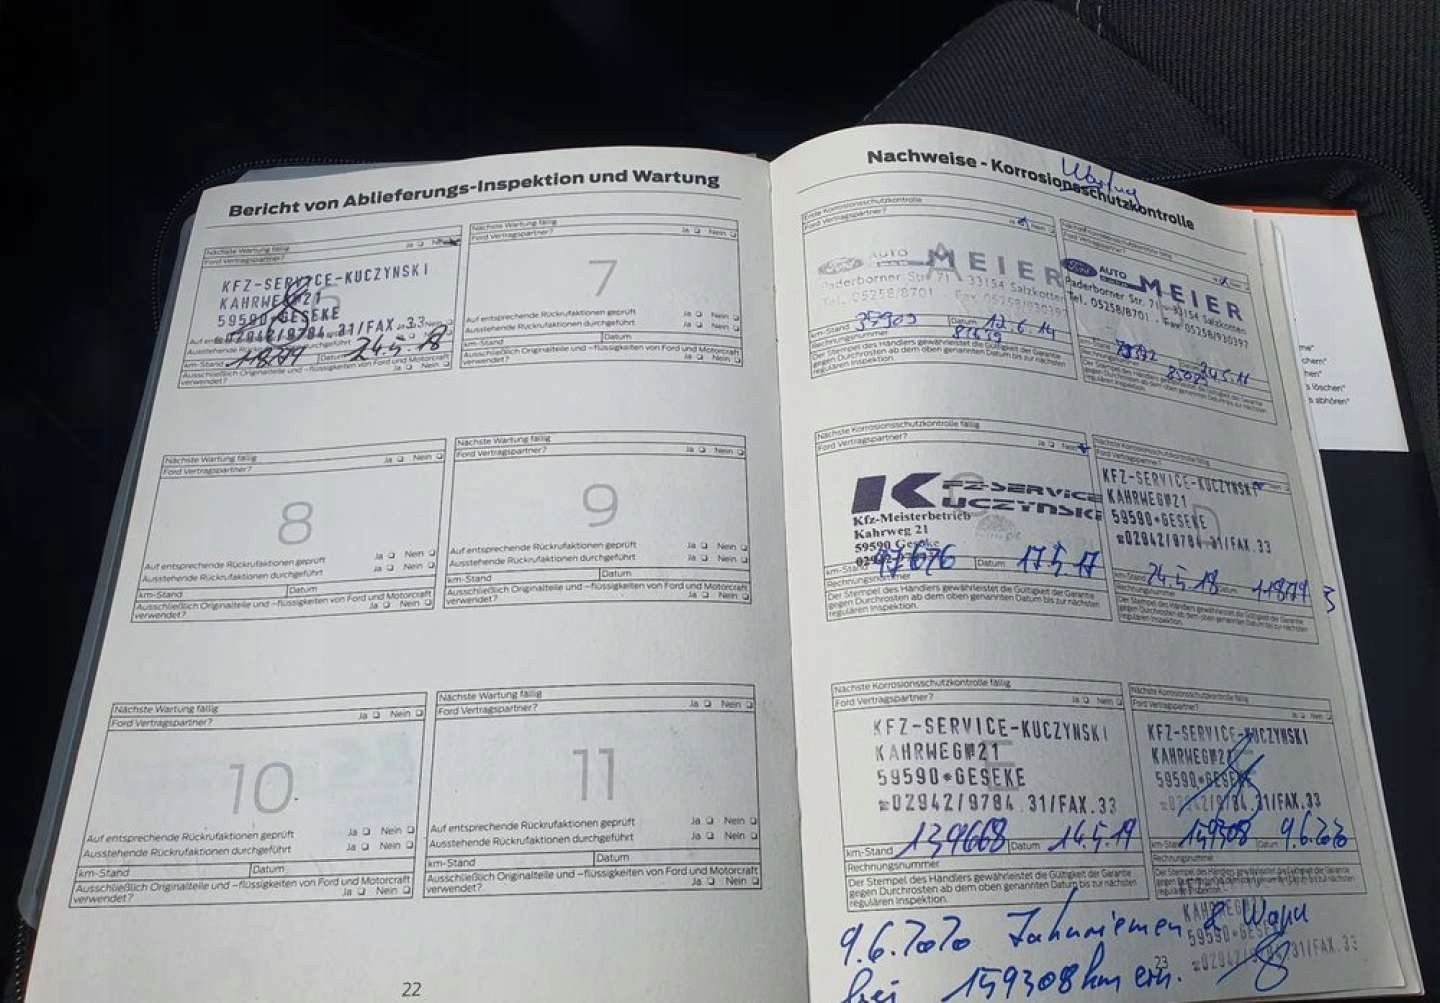 Bericht von Ablieferungs-Inspektion und Wartung
Nächste Wartung fällig
Ford Vertragspartner? Ja Nein
KFZ-SERVICE-KUCZYNSKI
KAHRWEG#21
59590*GESEKE
☎02942/9784.31/FAX.33
km-Stand Datum 24.5.18
Ausschließlich Originalteile und -flüssigkeiten von Ford und Motorcraft
verwendet? Ja Nein
Nächste Wartung fällig
Ford Vertragspartner? Ja Nein
7
Auf entsprechende Rückrufaktionen geprüft Ja Nein
Ausstehende Rückrufaktionen durchgeführt Ja Nein
km-Stand Datum
Ausschließlich Originalteile und -flüssigkeiten von Ford und Motorcraft
verwendet? Ja Nein
Nächste Wartung fällig
Ford Vertragspartner? Ja Nein
8
Auf entsprechende Rückrufaktionen geprüft Ja Nein
Ausstehende Rückrufaktionen durchgeführt Ja Nein
km-Stand Datum
Ausschließlich Originalteile und -flüssigkeiten von Ford und Motorcraft
verwendet? Ja Nein
Nächste Wartung fällig
Ford Vertragspartner? Ja Nein
9
Auf entsprechende Rückrufaktionen geprüft Ja Nein
Ausstehende Rückrufaktionen durchgeführt Ja Nein
km-Stand Datum
Ausschließlich Originalteile und -flüssigkeiten von Ford und Motorcraft
verwendet? Ja Nein
Nächste Wartung fällig
Ford Vertragspartner? Ja Nein
10
Auf entsprechende Rückrufaktionen geprüft Ja Nein
Ausstehende Rückrufaktionen durchgeführt Ja Nein
km-Stand Datum
Ausschließlich Originalteile und -flüssigkeiten von Ford und Motorcraft
verwendet? Ja Nein
Nächste Wartung fällig
Ford Vertragspartner? Ja Nein
11
Auf entsprechende Rückrufaktionen geprüft Ja Nein
Ausstehende Rückrufaktionen durchgeführt Ja Nein
km-Stand Datum
Ausschließlich Originalteile und -flüssigkeiten von Ford und Motorcraft
verwendet? Ja Nein
22
Nachweise - Korrosionsschutzkontrolle
Erste Korrosionsschutzkontrolle
Ford Vertragspartner? Ja Nein
Ford AUTO MEIER
Paderborner Str. 71 - 33154 Salzkotten
Tel. 05258/8701 Fax 05258/930397
km-Stand 37909 Datum 12.6.14
Rechnungsnummer
Der Stempel des Händlers gewährleistet die Gültigkeit der Garantie
gegen Durchrosten ab dem oben genannten Datum bis zur nächsten
regulären Inspektion.
Nächste Korrosionsschutzkontrolle fällig
Ford Vertragspartner?
Ford AUTO MEIER
Paderborner Str. 71 - 33154 Salzkotten
Tel. 05258/8701 - Fax 05258/930397
km-Stand
Der Stempel des Händlers gewährleistet die Gültigkeit der Garantie
gegen Durchrosten ab dem oben genannten Datum bis zur nächsten
regulären Inspektion.
Nächste Korrosionsschutzkontrolle fällig
Ford Vertragspartner? Ja Nein
KFZ-SERVICE
KUCZYNSKI
Kfz-Meisterbetrieb
Kahrweg 21
59590 Geseke
km-Stand 97676 Datum 17.5.17
Rechnungsnummer
Der Stempel des Händlers gewährleistet die Gültigkeit der Garantie
gegen Durchrosten ab dem oben genannten Datum bis zur nächsten
regulären Inspektion.
Nächste Korrosionsschutzkontrolle fällig
Ford Vertragspartner?
KFZ-SERVICE-KUCZYNSKI
KAHRWEG#21
59590*GESEKE
☎02942/9784.31/FAX.33
km-Stand 24.5.18 Datum
Rechnungsnummer
Der Stempel des Händlers gewährleistet die Gültigkeit der Garantie
gegen Durchrosten ab dem oben genannten Datum bis zur nächsten
regulären Inspektion.
Nächste Korrosionsschutzkontrolle fällig
Ford Vertragspartner? Ja Nein
KFZ-SERVICE-KUCZYNSKI
KAHRWEG#21
59590*GESEKE
☎02942/9784.31/FAX.33
km-Stand 139668 Datum 14.5.19
Rechnungsnummer
Der Stempel des Händlers gewährleistet die Gültigkeit der Garantie
gegen Durchrosten ab dem oben genannten Datum bis zur nächsten
regulären Inspektion.
Nächste Korrosionsschutzkontrolle fällig
Ford Vertragspartner? Ja Nein
KFZ-SERVICE-KUCZYNSKI
KAHRWEG#21
59590*GESEKE
☎02942/9784.31/FAX.33
km-Stand 159308 Datum 9.6.2020
Rechnungsnummer
Der Stempel des Händlers gewährleistet die Gültigkeit der Garantie
gegen Durchrosten ab dem oben genannten Datum bis zur nächsten
regulären Inspektion.
9.6.2020 Zahnriemen &
bei 159308km ern.
KAHRWEG#21
59590*GESEKE
☎02942/9784.31/FAX.33
23
chern"
hen"
s löschen"
s abhören"